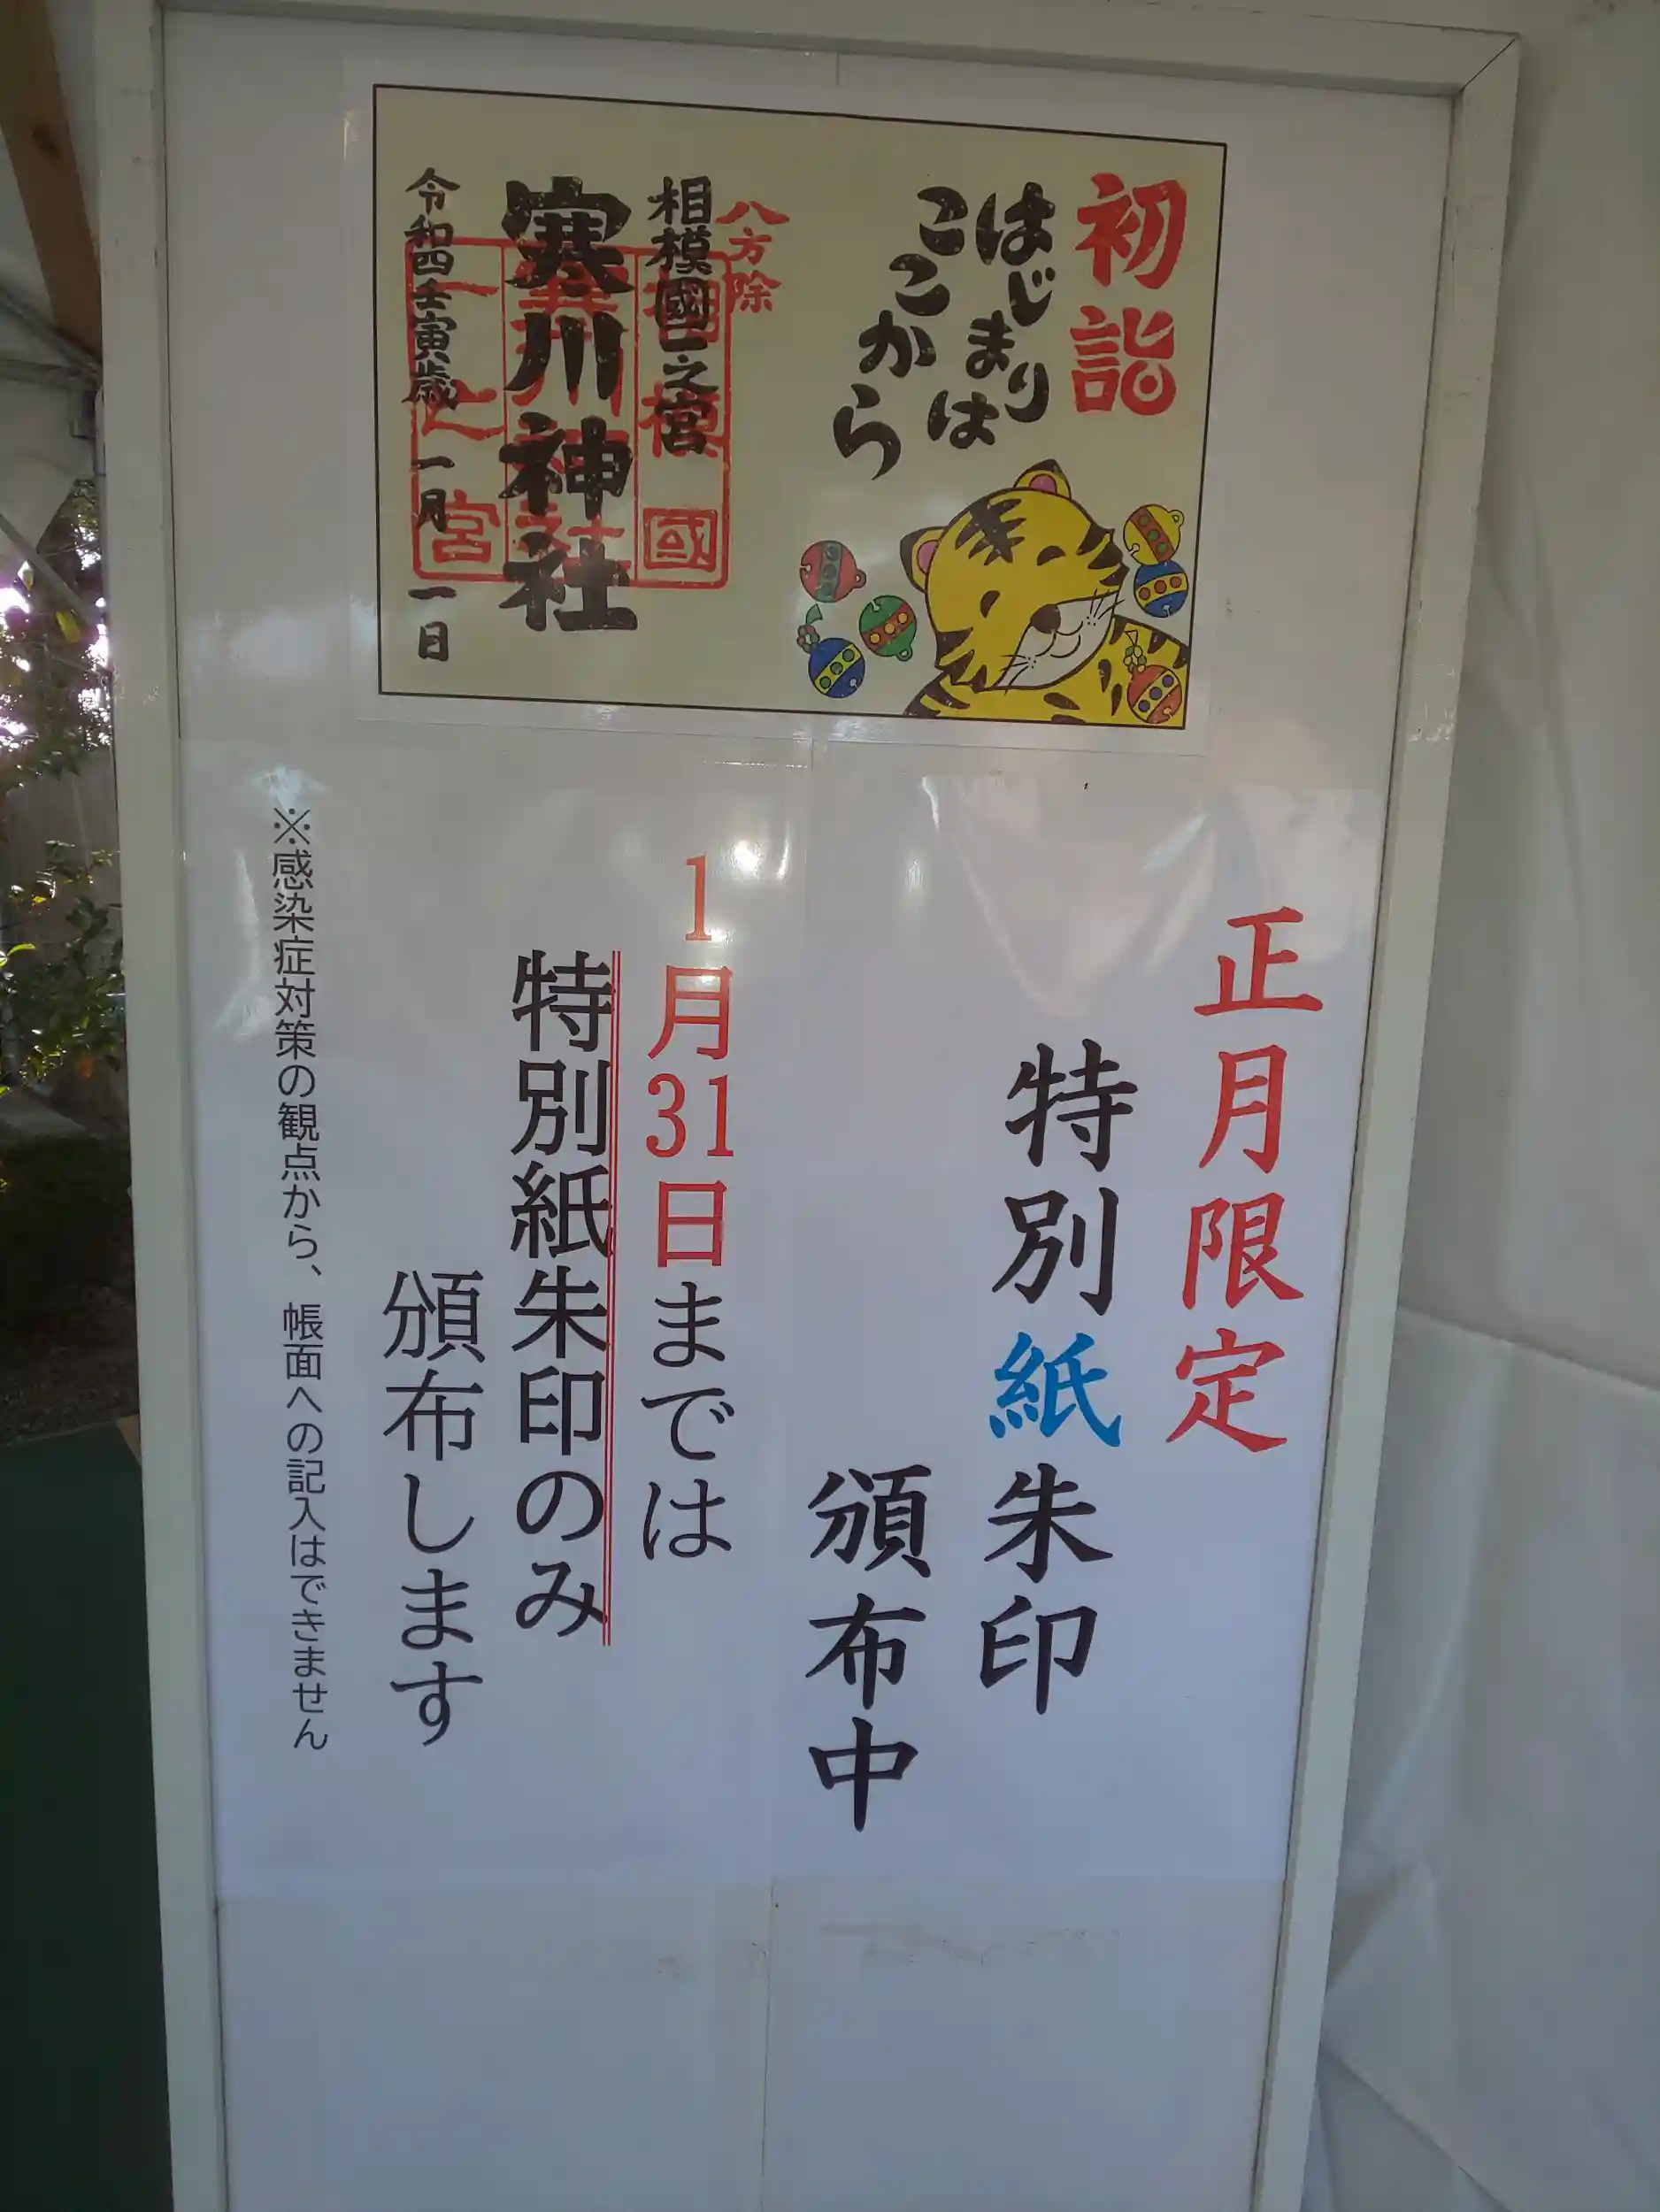 初詣
はじまりは
ここから
八方除
相模國一之宮
寒川神社
令和四壬寅歳 一月一日
相模國
寒川神社
一之宮
正月限定
特別紙朱印
頒布中
1月31日までは
特別紙朱印のみ
頒布します
※感染症対策の観点から、帳面への記入はできません